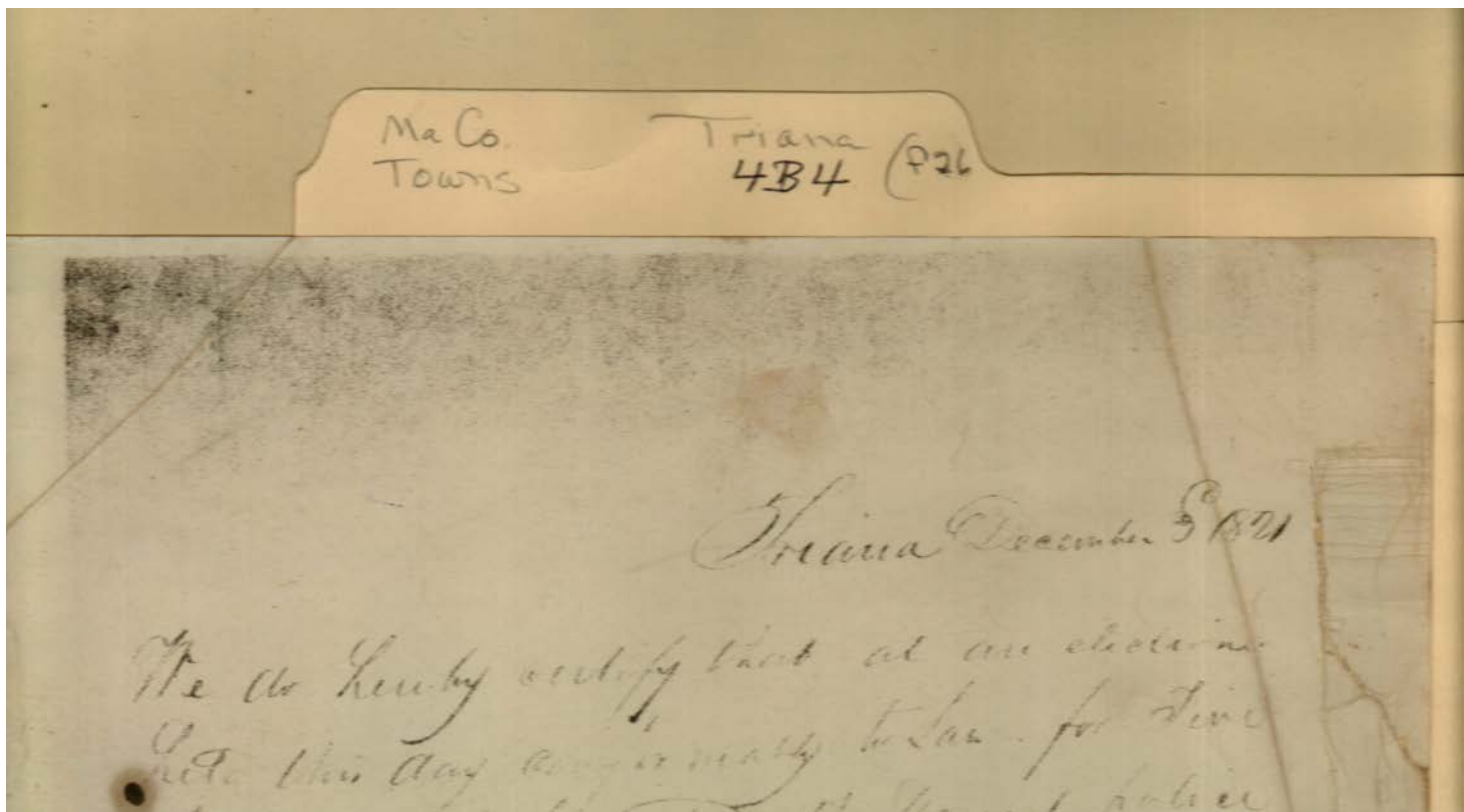 Ma Co. Triana
Towns 4B4 (F26
Triana December 3 1821
We do hereby certify that at an election
held this day conformably to Law for five
police